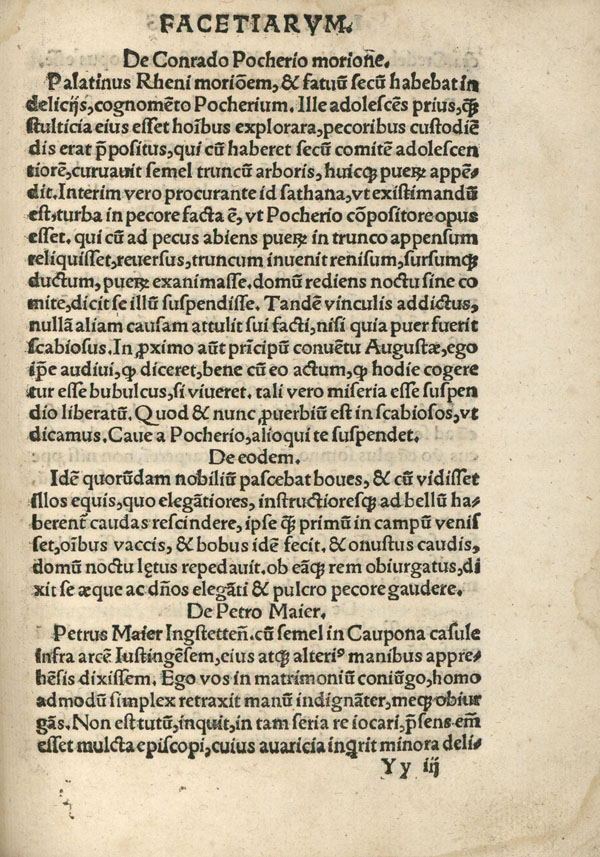 FACETIARVM.
De Conrado Pocherio morioñe.
Palatinus Rheni moriõem, & fatuũ secũ habebat in
delicijs, cognomẽto Pocherium. Ille adolescẽs prius, q̃
stulticia eius esset hoĩbus explorara, pecoribus custodiẽ
dis erat p̃positus, qui cũ haberet secũ comitẽ adolescen
tiorẽ, curuauit semel truncũ arboris, huicꝙ pueꝝ appẽ-
dit. Interim vero procurante id sathana, vt existimandũ
est, turba in pecore facta ẽ, vt Pocherio cõpositore opus
esset. qui cũ ad pecus abiens pueꝝ in trunco appensum
reliquisset, reuersus, truncum inuenit renisum, sursumꝙ
ductum, pueꝝ exanimasse. domũ rediens noctu sine co
mite, dicit se illũ suspendisse. Tandẽ vinculis addictus,
nullã aliam causam attulit sui facti, nisi quia puer fuerit
scabiosus. In ꝓximo aũt prĩcipũ conuẽtu Augustæ, ego
ip̃e audiui, ꝙ diceret, bene cũ eo actum, ꝙ hodie cogere
tur esse bubulcus, si viueret. tali vero miseria esse suspen
dio liberatũ. Quod & nunc ꝓuerbiũ est in scabiosos, vt
dicamus. Caue a Pocherio, alioqui te suspendet.
De eodem.
Idẽ quorũdam nobiliũ pascebat boues, & cũ vidisset
illos equis, quo elegãtiores, instructioresꝙ ad bellũ ha-
berent caudas rescindere, ipse q̃ primũ in campũ venis
set, oĩbus vaccis, & bobus idẽ fecit. & onustus caudis,
domũ noctu lętus repedauit. ob eãꝙ rem obiurgatus, di
xit se æque ac dños elegãti & pulcro pecore gaudere.
De Petro Maier.
Petrus Maier Ingstetteñ. cũ semel in Caupona casule
infra arcẽ Iustingẽsem, eius atꝙ alteriꝰ manibus appre-
hẽsis dixissem. Ego vos in matrimoniũ coniũgo, homo
admodũ simplex retraxit manũ indignãter, meꝙ obiur
gãs. Non est tutũ, inquit, in tam seria re iocari, p̃sens em̃
esset mulcta episcopi, cuius auaricia inq̃rit minora deli-
Y y iij